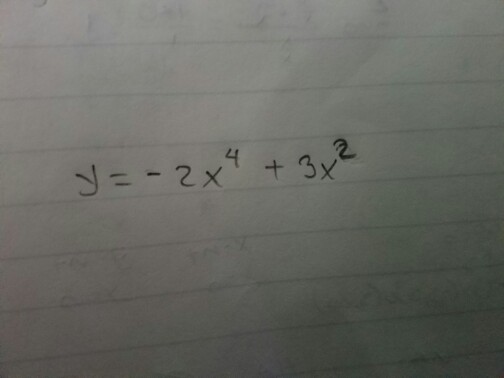 y = -2x⁴ + 3x²